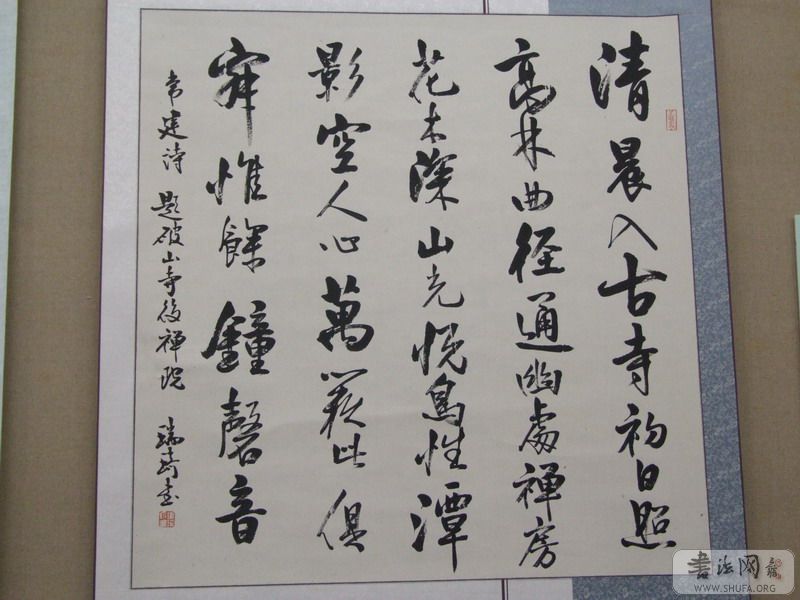 清晨入古寺初日照
高林曲径通幽處禪房
花木深山光悦鳥性潭
影空人心萬籟此俱
寂惟餘鐘磬音
常建诗 題破山寺後禪院 瑞奇书
書法网
WWW.SHUFA.ORG